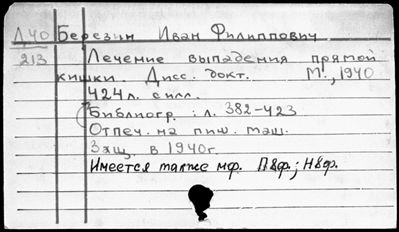 Д40 Березин Иван Филиппович
213 Лечение выпадения прямой
кишки. Дисс. докт. М., 1940
424л. силл.
Библиогр.: л. 382-423
Отпеч. на пиш. маш.
Защ. в 1940г.
Имеется также мф. П8ф.; Н8ф.